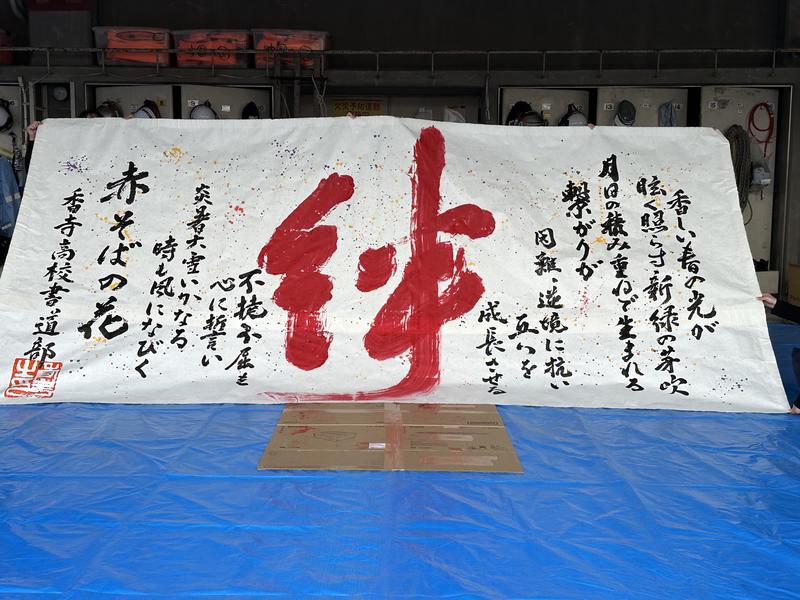 火災予防運動
香しい春の光が
眩く照らす新緑の芽吹
月日の積み重ねで生まれる
繋がりが
困難、逆境に抗い
互いを
成長させる
絆
不撓不屈を
心に誓い
炎暑大雪いかなる
時も風になびく
赤そばの花
香寺高校書道部